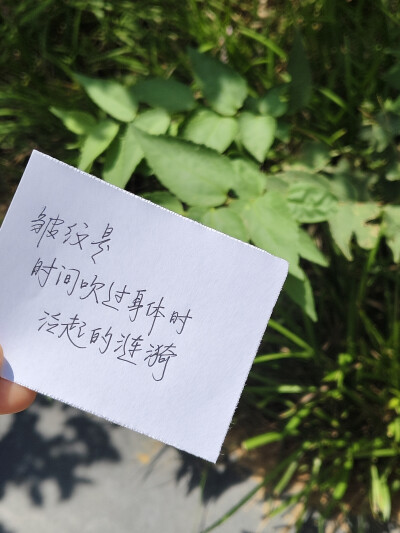 皱纹是
时间吹过身体时
泛起的涟漪